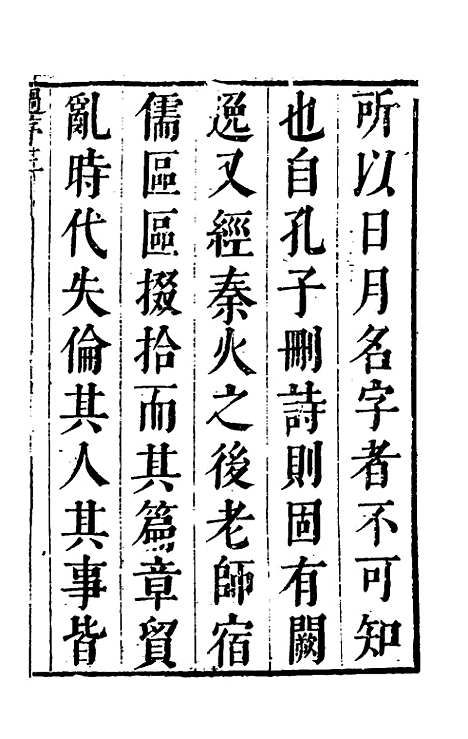 所以日月名字者不可知
也自孔子刪詩則固有闕
逸又經秦火之後老師宿
儒區區掇拾而其篇章貿
亂時代失倫其人其事皆